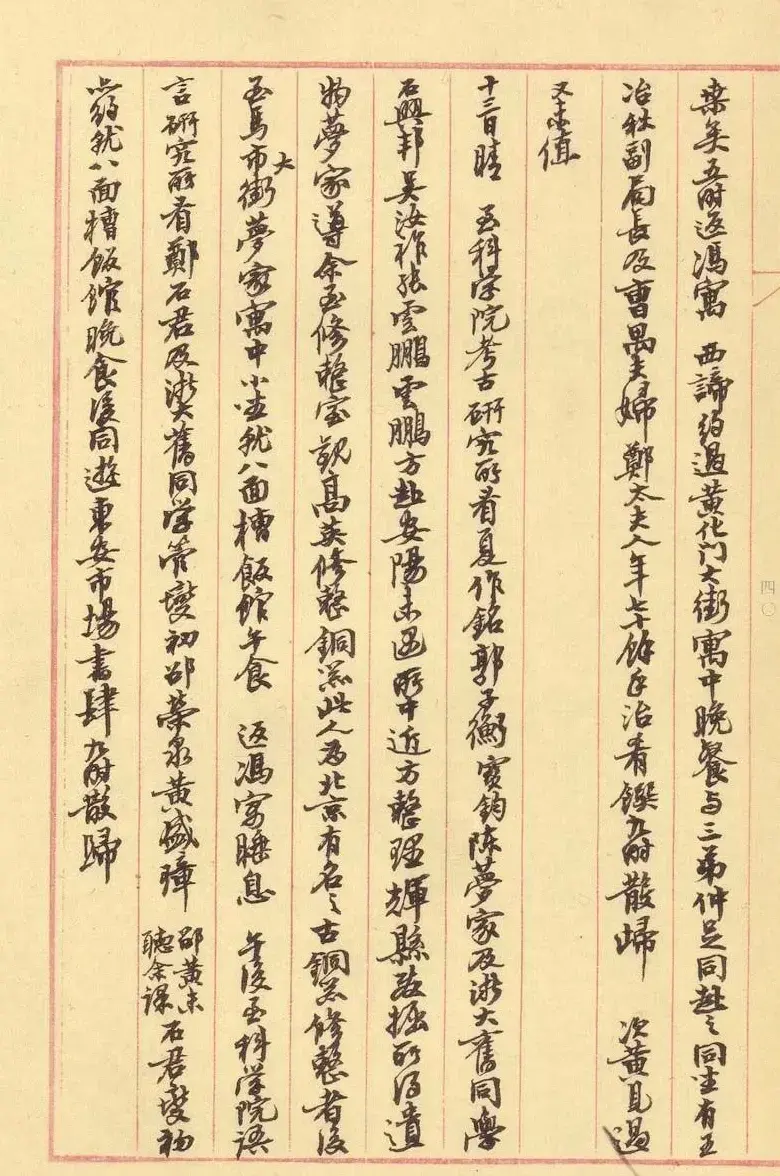 矣五时返馮寓 西諦約過黃化门大街寓中晚餐与三弟仲足同赴之同坐有王
冶秋副局長及曹禺夫婦鄭太夫人年七十餘手治肴饌九时散歸 次黃見過
又未值
十三日晴 至科学院考古研究所看夏作銘郭子衡寶鈞陈夢家及浙大舊同學
石興邦吴汝祚张雲鵬雲鵬方赴安陽未遇所中近方整理輝縣發掘所得遺
物夢家導余至修整室观高英修整銅器此人为北京有名之古銅器修整者後
至馬市大街夢家寓中小坐就八面槽飯館午食 返馮寓睡息 午後至科学院語
言研究所看鄭石君及浙大舊同学管燮初邵荣芬黄盛璋邵黃未聽余課石君燮初
約就八面槽飯館晚食後同遊東安市場書肆九时散歸
四〇